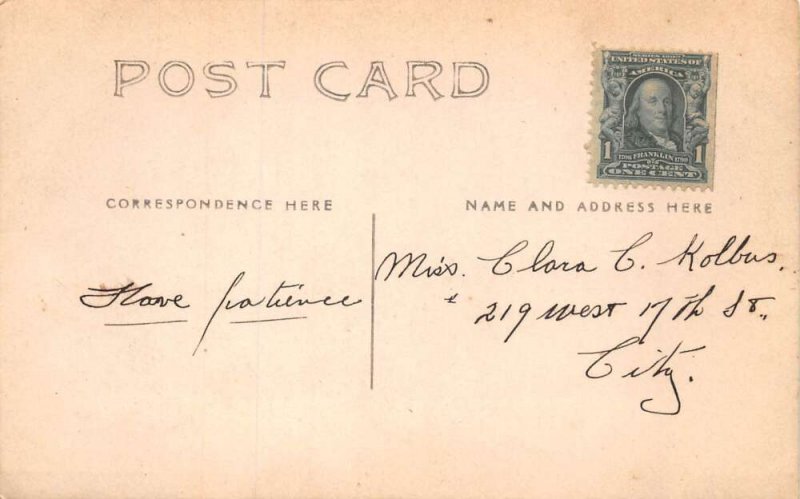 POST CARD
SERIES 1902
UNITED STATES OF
AMERICA
1 1
1706 FRANKLIN 1790
POSTAGE
ONE CENT
CORRESPONDENCE HERE
NAME AND ADDRESS HERE
Have patience
Miss. Clara C. Kolbus.
219 West 17th St.,
City.